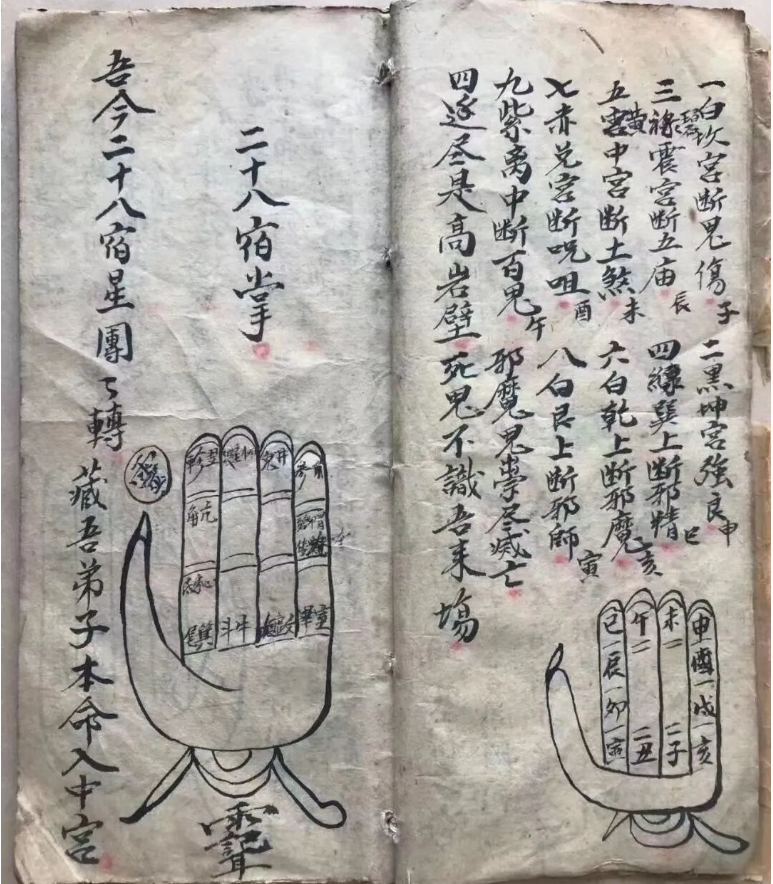 一白坎宮断鬼傷子 二黑坤宮強良申
三祿碧震宮断五庙辰 四綠巽上断邪精巳
五黄中宮断土煞未 六白乾上断邪魔亥
七赤兑宮断呪咀酉 八白艮上断邪師寅
九紫离中断百鬼午 邪魔鬼祟尽滅亡
四边尽是高岩壁 死鬼不識吾来場
申酉戌亥
未 子
午 丑
巳辰卯寅
二十八宿掌
吾今二十八宿星團々轉 藏吾弟子本命入中宮
鬼井
軫
角亢
尾箕
斗牛